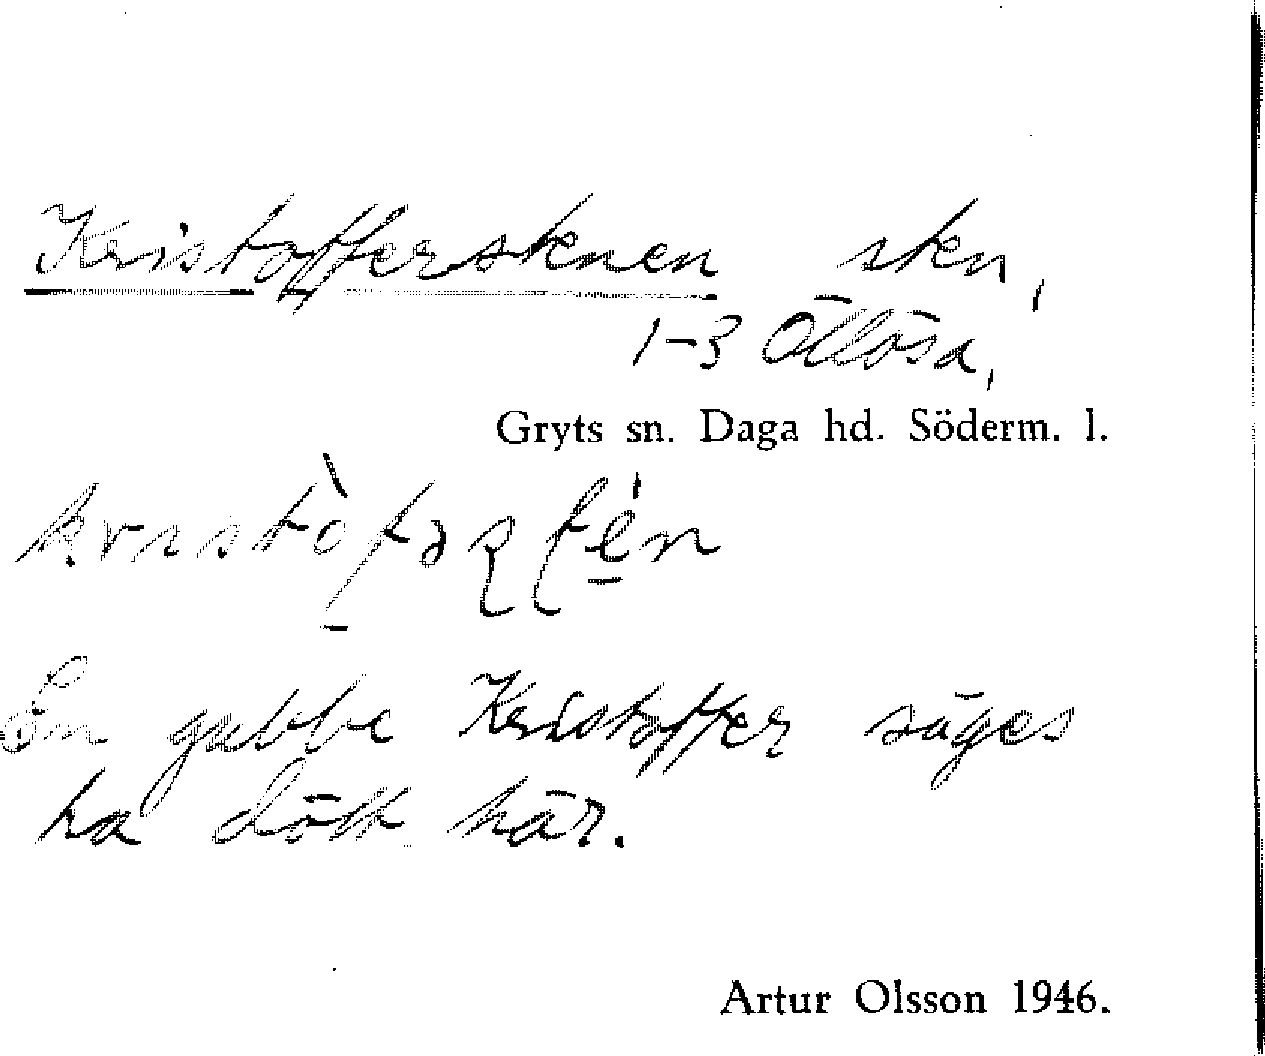 Kristoffersstenen sten,
1-3 Öllösa,
Gryts sn. Daga hd. Söderm. l.
En gubbe Kristoffer säges
ha dött här.
Artur Olsson 1946.